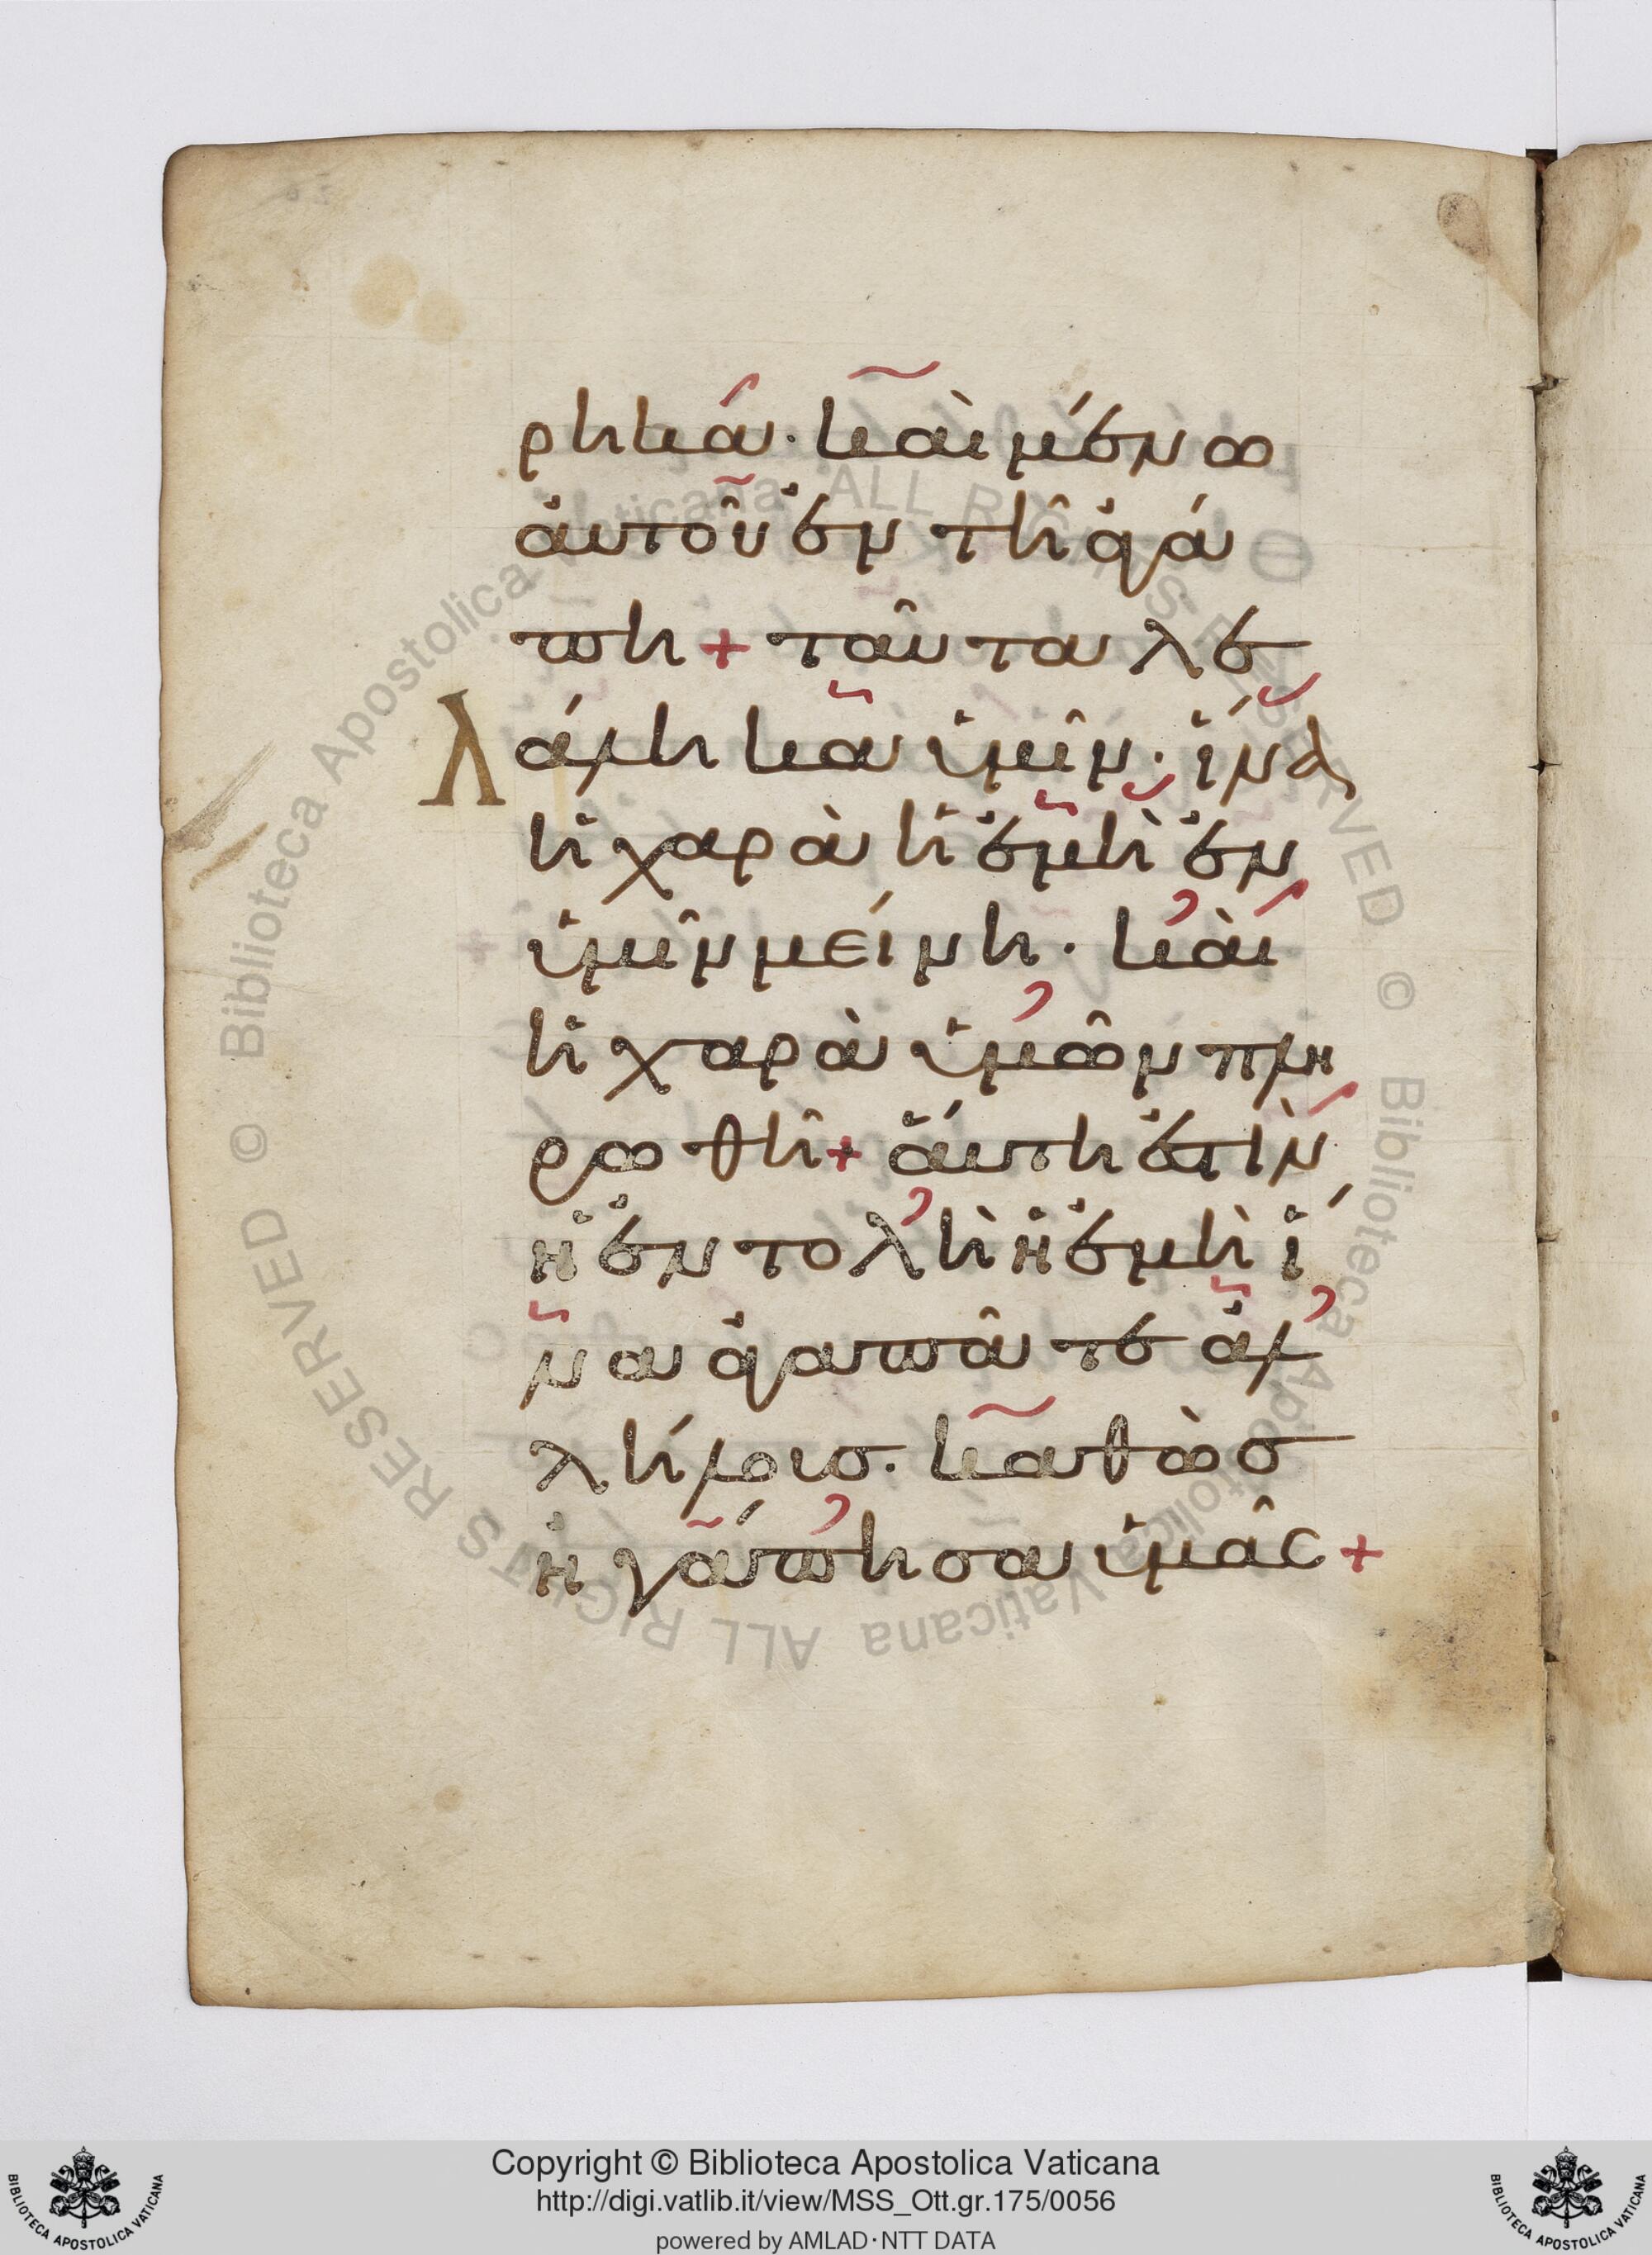 ρηκα· καὶ μένω
ἀυτοῦ ἐν τῆ ἀγά
πη + ταῦτα λε
λάληκα ὑμῖν· ἵνα
ἡ χαρὰ ἡ ἐμὴ ἐν
ὑμῖν μείνη· καὶ
ἡ χαρὰ ὑμῶν πλη
ρωθῆ + ἅυτη ἐστὶν
ἡ ἐντολὴ ἡ ἐμὴ ἵ
να ἀγαπᾶτε ἀλ
λήλοις· καθὼσ
ἠγάπησα ὑμᾶς +
Copyright © Biblioteca Apostolica Vaticana
http://digi.vatlib.it/view/MSS_Ott.gr.175/0056
powered by AMLAD·NTT DATA
BIBLIOTECA APOSTOLICA VATICANA
BIBLIOTECA APOSTOLICA VATICANA
© Biblioteca Apostolica Vaticana ALL RIGHTS RESERVED
© Biblioteca Apostolica Vaticana ALL RIGHTS RESERVED